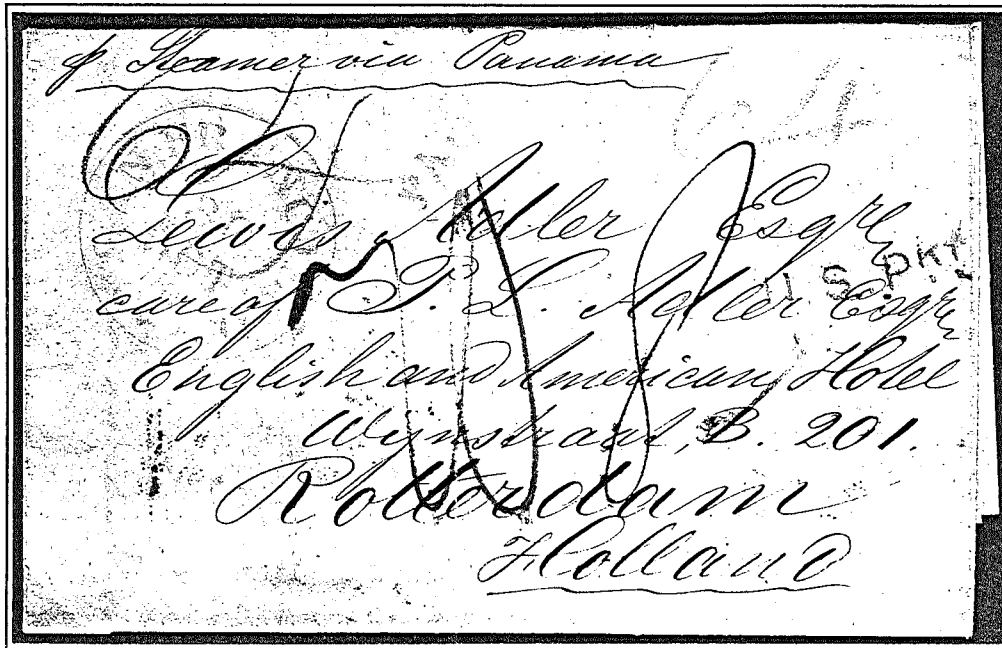 p Steamer via Panama
Lewis Adler Esqre
care of P. L. Adler Esqre
U.S. PKT
English and American Hotel
Wijnstraat, B. 201.
Rotterdam
Holland